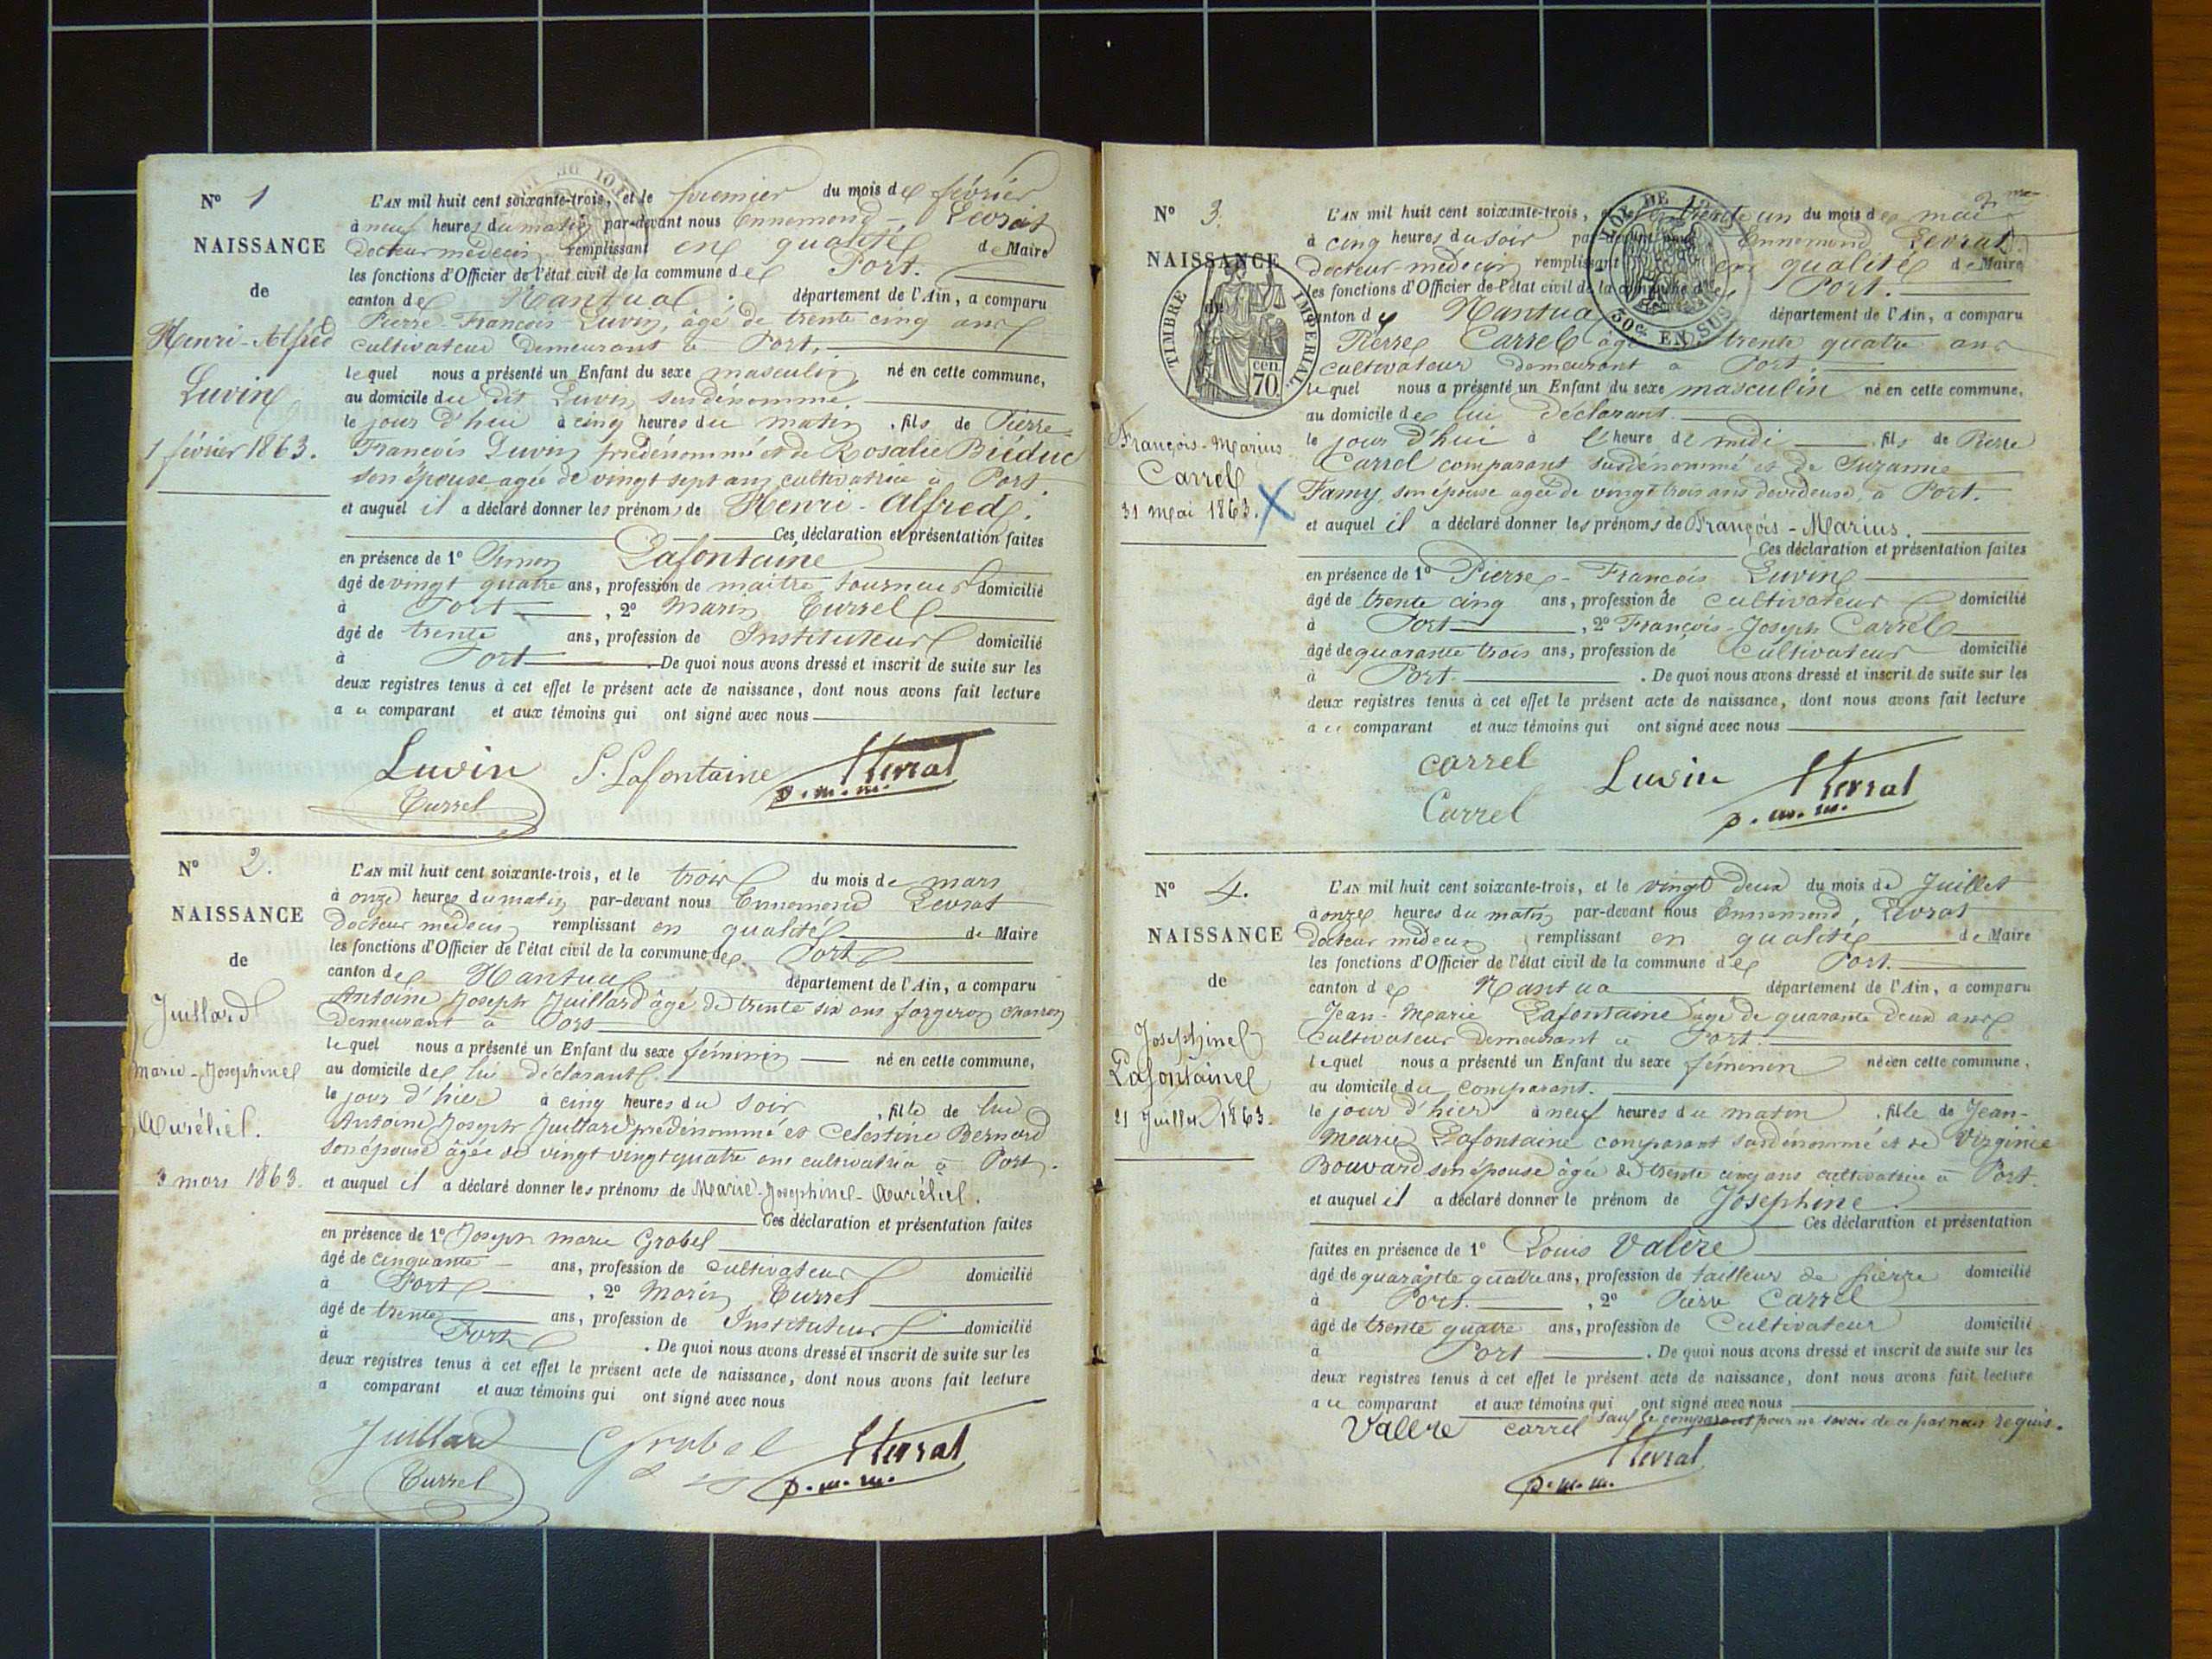 N° 1
NAISSANCE
de
Henri-Alfred
Luvin
1 février 1863.
L'AN mil huit cent soixante-trois, et le premier du mois de février
à neuf heures du matin par-devant nous Ennemond Levrat
docteur médecin remplissant en qualité de Maire
les fonctions d'Officier de l'état civil de la commune de Port.
canton de Nantua département de l'Ain, a comparu
Pierre-François Luvin, âgé de trente cinq ans
cultivateur demeurant à Port,
lequel nous a présenté un Enfant du sexe masculin né en cette commune,
au domicile du dit Luvin susdénommé.
le jour d'hui à cinq heures du matin, fils de Pierre
François Luvin prédénommé et de Rosalie
son épouse agée de vingt sept ans cultivatrice à Port.
et auquel il a déclaré donner les prénoms de Henri-Alfred.
Ces déclaration et présentation faites
en présence de 1° Simon Lafontaine
âgé de vingt quatre ans, profession de maitre tourneur domicilié
à Port, 2° Marin Turrel
âgé de trente ans, profession de Instituteur domicilié
à Port. De quoi nous avons dressé et inscrit de suite sur les
deux registres tenus à cet effet le présent acte de naissance, dont nous avons fait lecture
a ce comparant et aux témoins qui ont signé avec nous
Luvin S. Lafontaine Levrat
Turrel d. m. m.
N° 2.
NAISSANCE
de
Juillard
Marie-Josephine
Aurélie.
3 mars 1863.
L'AN mil huit cent soixante-trois, et le trois du mois de mars
à onze heures du matin par-devant nous Ennemond Levrat
Docteur médecin remplissant en qualité de Maire
les fonctions d'Officier de l'état civil de la commune de Port
canton de Nantua département de l'Ain, a comparu
Antoine Joseph Juillard âgé de trente six ans forgeron
demeurant à Port
lequel nous a présenté un Enfant du sexe féminin né en cette commune,
au domicile de lui déclarant.
le jour d'hier à cinq heures du soir, fille de lui
Antoine Joseph Juillard prédénommé et Celestine Bernard
son épouse âgée de vingt vingt quatre ans cultivatrice à Port.
et auquel il a déclaré donner les prénoms de Marie-Josephine-Aurélie.
Ces déclaration et présentation faites
en présence de 1° Joseph marie Grobel
âgé de cinquante ans, profession de cultivateur domicilié
à Port, 2° Marin Turrel
âgé de trente ans, profession de Instituteur domicilié
à Port. De quoi nous avons dressé et inscrit de suite sur les
deux registres tenus à cet effet le présent acte de naissance, dont nous avons fait lecture
a comparant et aux témoins qui ont signé avec nous
Juillard Grobel Levrat
Turrel d. m. m.
N° 3.
NAISSANCE
de
TIMBRE IMPÉRIAL
70 cen
François-Marius
Carrel
31 mai 1863.
LOI DE
30c. EN SUS
L'AN mil huit cent soixante-trois, et le trente un du mois de mai
à cinq heures du soir par-devant nous Ennemond Levrat
docteur-médecin remplissant en qualité de Maire
les fonctions d'Officier de l'état civil de la commune de Port.
canton de Nantua département de l'Ain, a comparu
Pierre Carrel âgé de trente quatre ans
cultivateur demeurant à Port.
lequel nous a présenté un Enfant du sexe masculin né en cette commune,
au domicile de lui déclarant.
le jour d'hui à l'heure de midi, fils de Pierre
Carrel comparant susdénommé et de Suzanne
Famy, son épouse agée de vingt trois ans devideuse, à Port.
et auquel il a déclaré donner les prénoms de François-Marius.
Ces déclaration et présentation faites
en présence de 1° Pierre-François Luvin
âgé de trente cinq ans, profession de cultivateur domicilié
à Port, 2° François-Joseph Carrel
âgé de quarante trois ans, profession de Cultivateur domicilié
à Port. De quoi nous avons dressé et inscrit de suite sur les
deux registres tenus à cet effet le présent acte de naissance, dont nous avons fait lecture
a ce comparant et aux témoins qui ont signé avec nous
carrel Luvin Levrat
Carrel d. m. m.
N° 4.
NAISSANCE
de
Josephine
Lafontaine
21 Juillet 1863.
L'AN mil huit cent soixante-trois, et le vingt deux du mois de Juillet
à onze heures du matin par-devant nous Ennemond, Levrat
docteur médecin remplissant en qualité de Maire
les fonctions d'Officier de l'état civil de la commune de Port.
canton de Nantua département de l'Ain, a comparu
Jean-Marie Lafontaine âgé de quarante deux ans
cultivateur demeurant à Port.
lequel nous a présenté un Enfant du sexe féminin née en cette commune,
au domicile du comparant.
le jour d'hier à neuf heures du matin, fille de Jean-
Marie Lafontaine comparant susdénommé et de Virginie
Bouvard son épouse âgée de trente cinq ans cultivatrice à Port.
et auquel il a déclaré donner le prénom de Josephine.
Ces déclaration et présentation
faites en présence de 1° Louis Valère
âgé de quarante quatre ans, profession de tailleur de pierre domicilié
à Port., 2° Pierre Carrel
âgé de trente quatre ans, profession de Cultivateur domicilié
à Port. De quoi nous avons dressé et inscrit de suite sur les
deux registres tenus à cet effet le présent acte de naissance, dont nous avons fait lecture
a ce comparant et aux témoins qui ont signé avec nous
sauf le comparant pour ne savoir de ce par nous requis.
Valère carrel
Levrat
d. m. m.